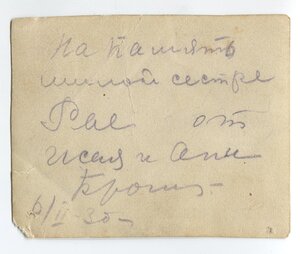 На память
милой сестре
Рае от
Исая и Ани
6/II-30